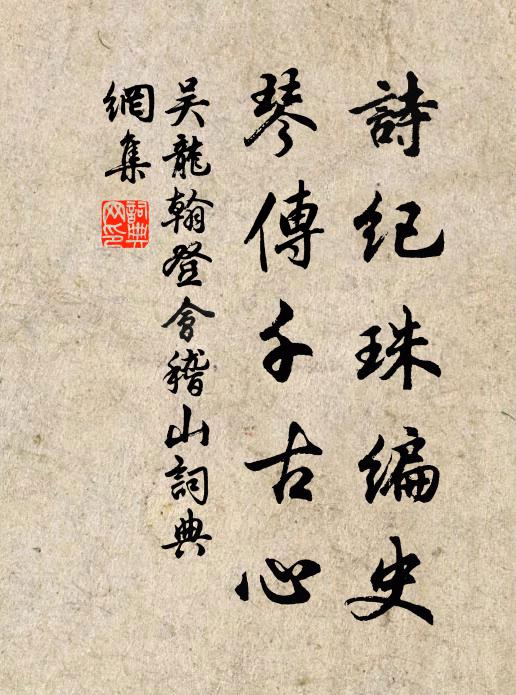 詩紀珠編史
琴傳千古心
吳龍翰登會稽山詞典
網集
詞典網印